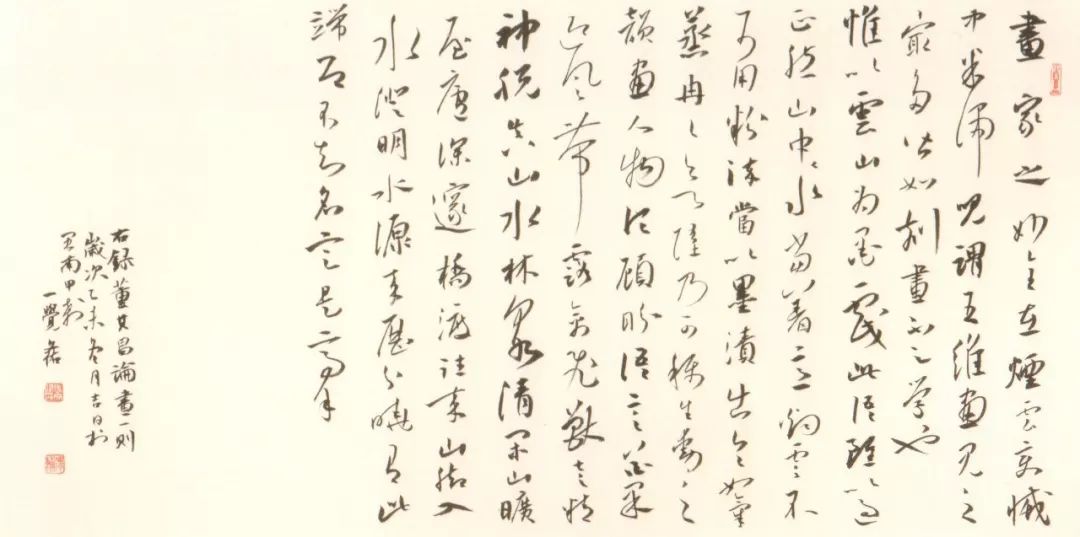 畫家之妙全在煙雲變滅
中米虎兒謂王維畫見之
最多皆如刻畫不足學也
惟以雲山為墨戲此語雖以過
正然山中水當著意煙雲不
可用粉染當以墨漬出令如氣
蒸冉冉欲墮乃可稱生動之
韻畫人物須顧盼語言花果
迎風帶露禽飛獸走精
神脫真山水林泉清閑山曠
屋廬深邃橋渡往來山腳入
水澄明水源來歷分曉有此
端不知名定是高手
右錄董其昌論畫一則
歲次乙未冬月吉日於
一覺